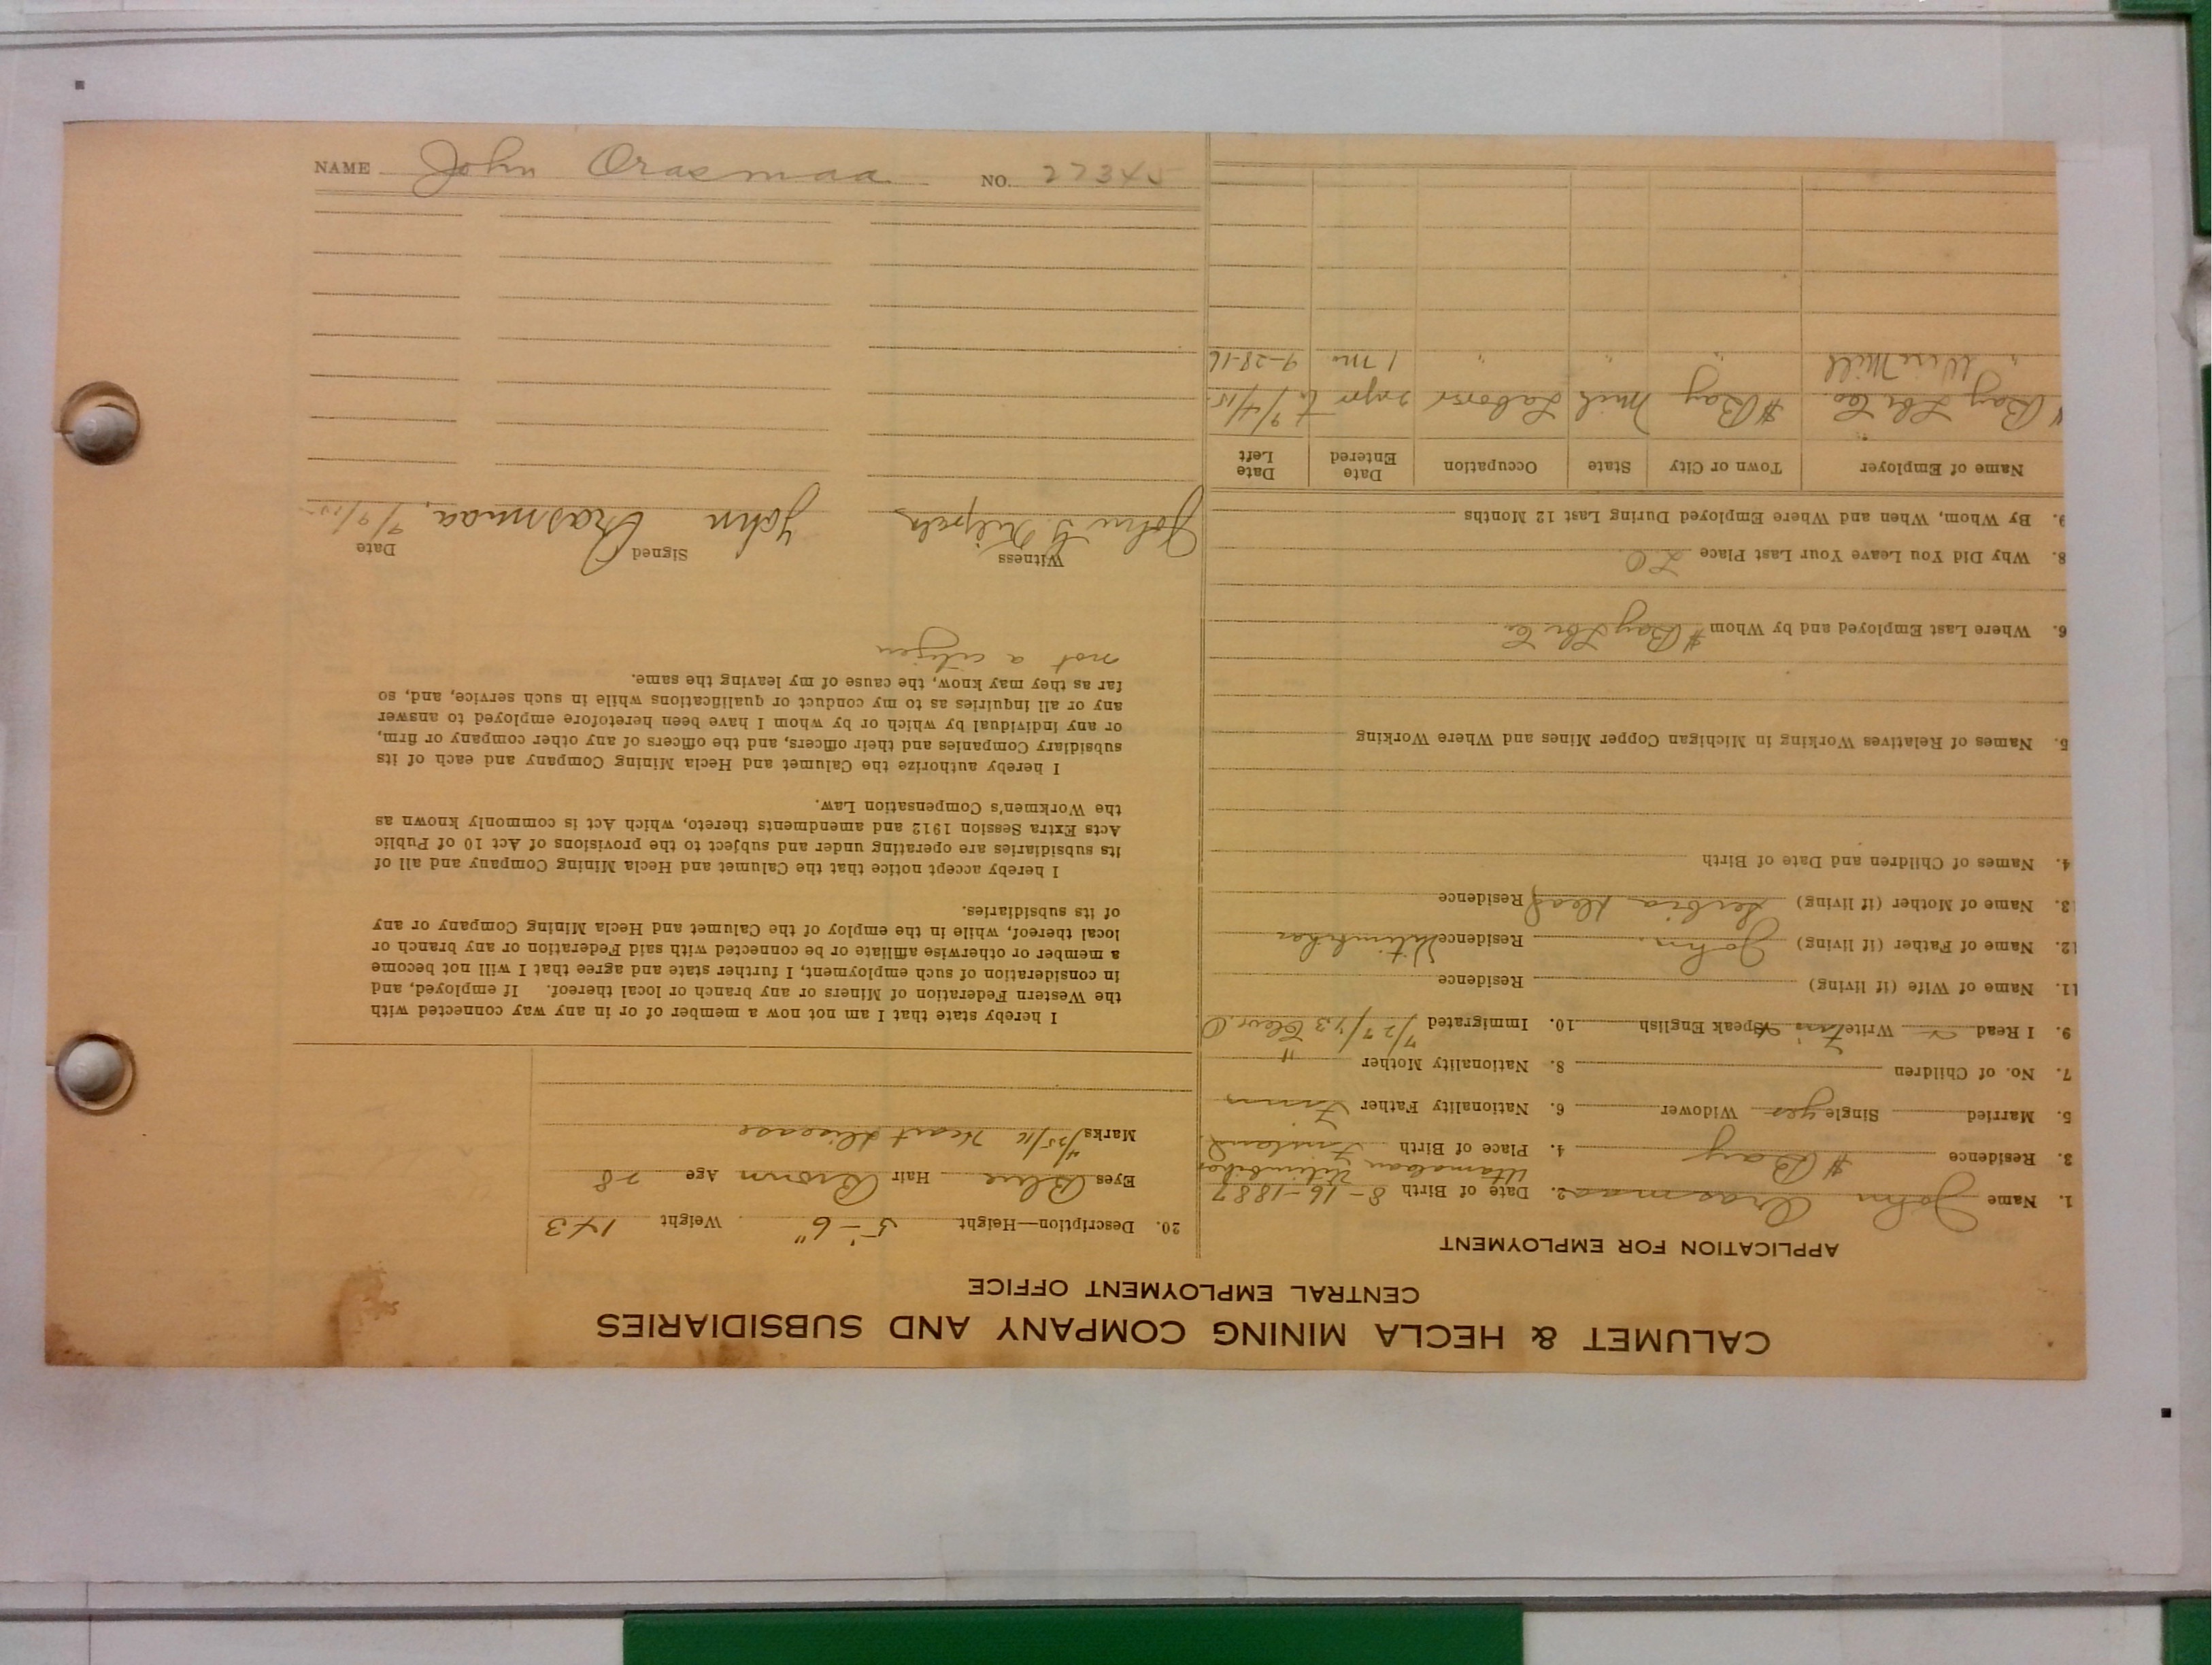 NAME John Orasmaa NO. 2734
CALUMET & HECLA MINING COMPANY AND SUBSIDIARIES
CENTRAL EMPLOYMENT OFFICE
APPLICATION FOR EMPLOYMENT
1. Name John Orasmaa 2. Date of Birth 8-16-1887
3. Residence # Bay 4. Place of Birth Finland
5. Married Single yes Widower 6. Nationality Father Finns
7. No. of Children 8. Nationality Mother "
9. I Read Write Speak English 10. Immigrated
11. Name of Wife (if living) Residence
12. Name of Father (if living) John Residence
13. Name of Mother (if living) dead Residence
4. Names of Children and Date of Birth
5. Names of Relatives Working in Michigan Copper Mines and Where Working
6. Where Last Employed and by Whom # Bay Lbr Co.
8. Why Did You Leave Your Last Place LO
9. By Whom, When and Where Employed During Last 12 Months
Name of Employer Town or City State Occupation Date Entered Date Left
# Bay Lbr Co. # Bay Mich Laborer 9/4/15
" Wire Mill " " " 1 mo 9-28-16
20. Description—Height 5'-6" Weight 143
Eyes Blue Hair Brown Age 28
Marks 4/25/16 Heart disease
I hereby state that I am not now a member of or in any way connected with
the Western Federation of Miners or any branch or local thereof. If employed, and
in consideration of such employment, I further state and agree that I will not become
a member or otherwise affiliate or be connected with said Federation or any branch or
local thereof, while in the employ of the Calumet and Hecla Mining Company or any
of its subsidiaries.
I hereby accept notice that the Calumet and Hecla Mining Company and all of
its subsidiaries are operating under and subject to the provisions of Act 10 of Public
Acts Extra Session 1912 and amendments thereto, which Act is commonly known as
the Workmen's Compensation Law.
I hereby authorize the Calumet and Hecla Mining Company and each of its
subsidiary Companies and their officers, and the officers of any other company or firm,
or any individual by which or by whom I have been heretofore employed to answer
any or all inquiries as to my conduct or qualifications while in such service, and, so
far as they may know, the cause of my leaving the same.
not a citizen
Witness Signed Date
John John Orasmaa, 9/9/15